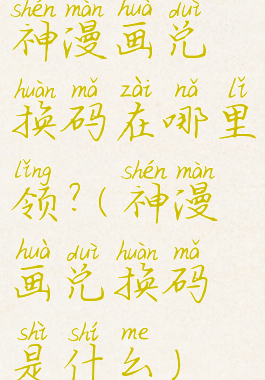 shén màn huà duì
神漫画兑
huàn mǎ zài nǎ lǐ
换码在哪里
lǐng shén màn
领？（神漫
huà duì huàn mǎ
画兑换码
shì shí me
是什么）